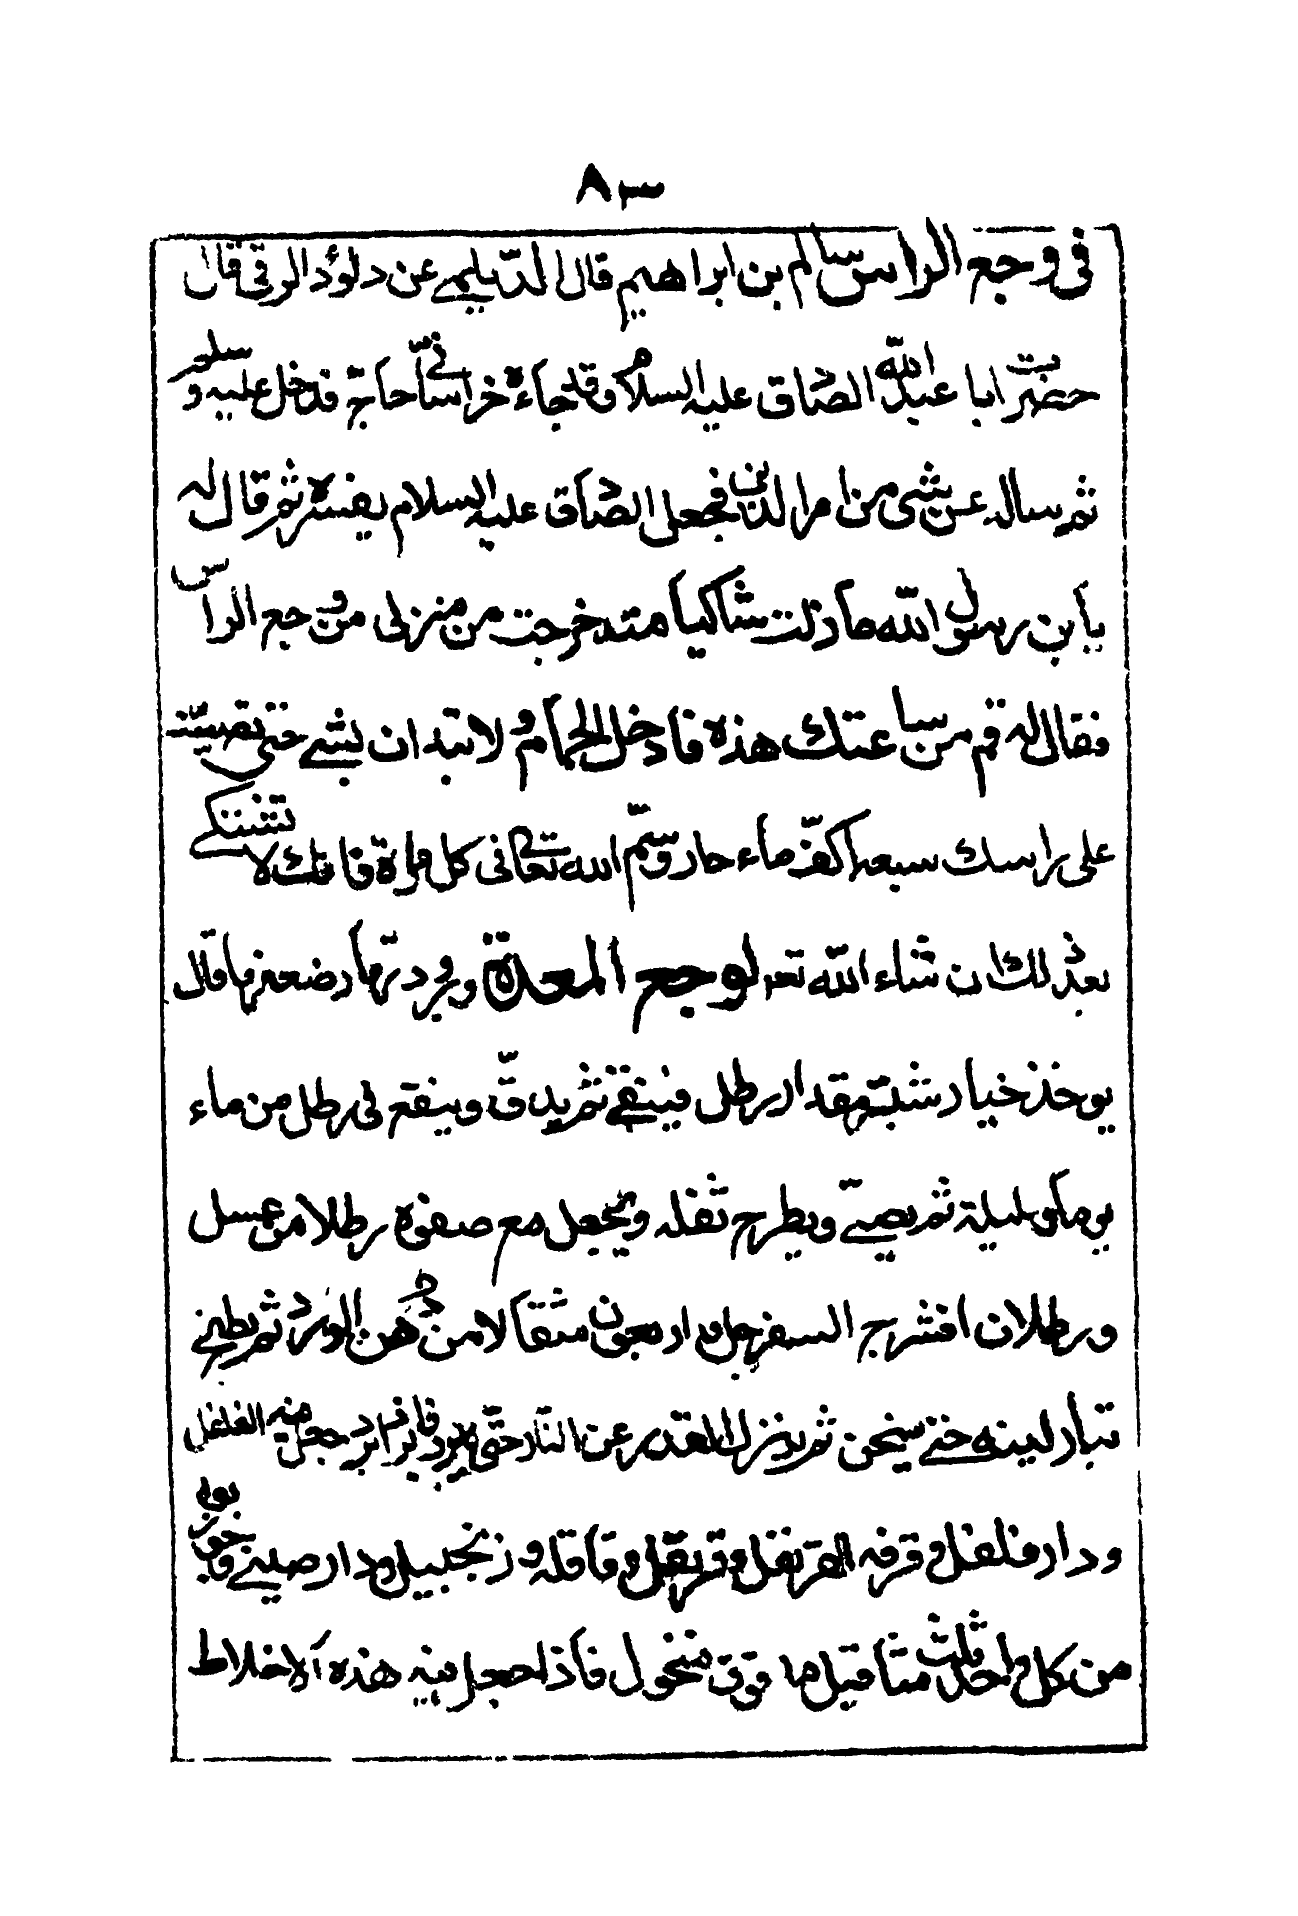 ٨٣
في وجع الراس سالم بن ابراهيم قال الديلمي عن داود الرقي قال
حضرت ابا عبد الله الصادق عليه السلام وقد جاءه خراساني حاج فدخل عليه وسلم
ثم ساله عن شي من امر الدين فجعل الصادق عليه السلام يفسره ثم قال له
يا بن رسول الله ما زلت شاكيا منذ خرجت من منزلي من وجع الراس
فقال له قم من ساعتك هذه فادخل الحمام ولا تبتدان بشي حتى تصيب
على راسك سبعه اكف ماء حار وسم الله تعالى في كل مرة فانك لا تشتكي
بعد ذلك ان شاء الله تعه لوجع المعدة وبرودتها وضعفها قال
يوخذ خيار شنبة مقدار رطل فينقى ثم يدق وينقع في رطل من ماء
يوما وليلة ثم يصفى ويطرح ثفله ويجعل مع صفوه رطلا من عسل
ورطلان افشرج السفرجل واربعون مثقالا من دهن الورد ثم يطبخ
بنار لينه حتى يثخن ثم ينزل القدر عن النار حتى يبرد فاذا برد جعل فيه الفلفل
ودار فلفل وقرفه القرنفل وقرنفل وقاقله وزنجبيل ودار صيني وجوز بوا
من كل واحد ثلث مثاقيل مدقوق منخول فاذا جعل فيه هذه الاخلاط